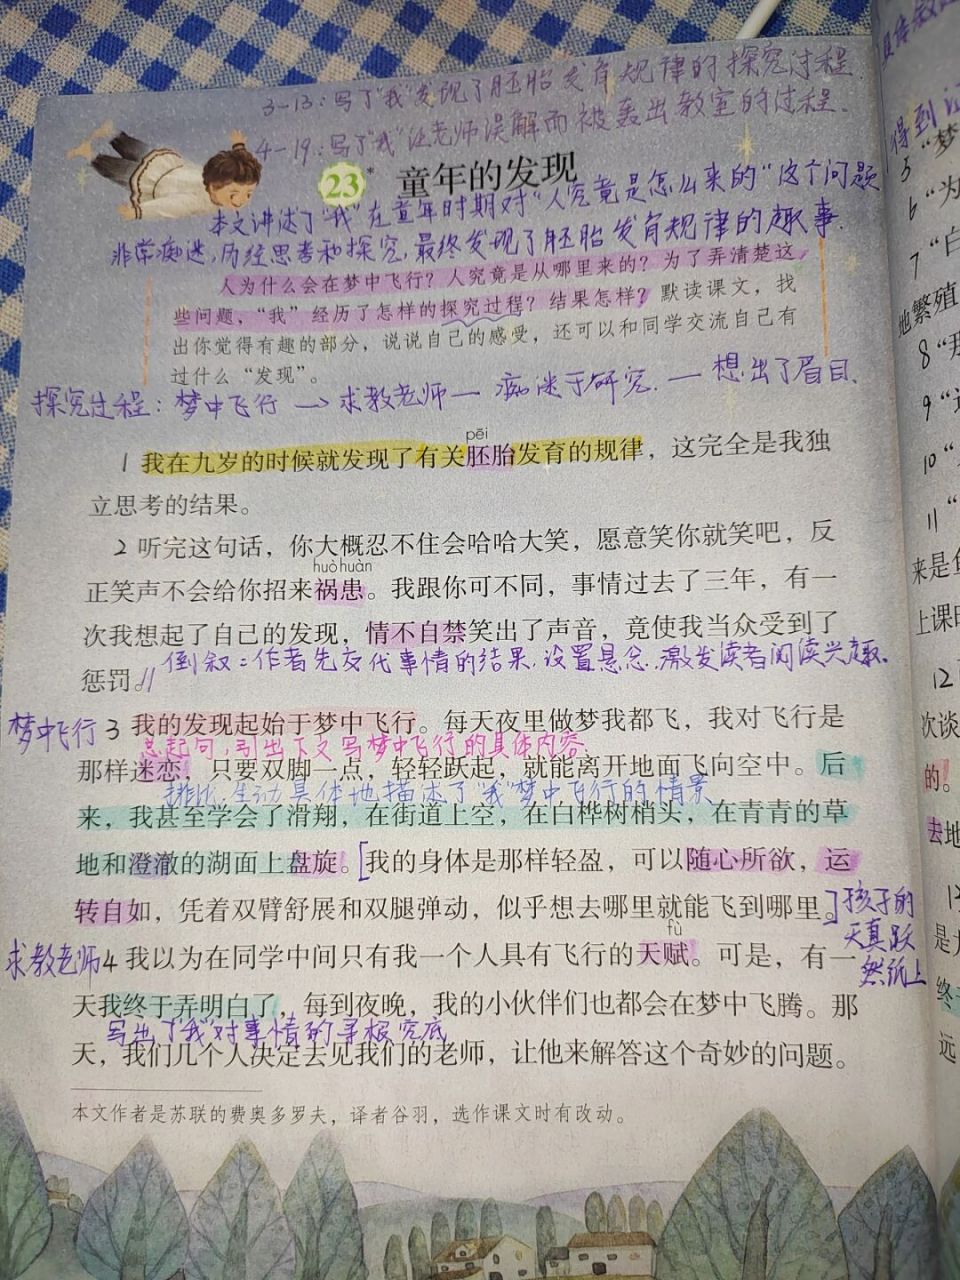 3-13：写了"我"发现了胚胎发育规律的探究过程
4-19：写了"我"让老师误解而被轰出教室的过程.
23* 童年的发现
本文讲述了"我"在童年时期对"人究竟是怎么来的"这个问题
非常痴迷,历经思考和探究,最终发现了胚胎发育规律的趣事.
人为什么会在梦中飞行？人究竟是从哪里来的？为了弄清楚这
些问题，“我”经历了怎样的探究过程？结果怎样？默读课文，找
出你觉得有趣的部分，说说自己的感受，还可以和同学交流自己有
过什么“发现”。
探究过程：梦中飞行→求教老师—痴迷于研究.—想出了眉目.
pēi
1 我在九岁的时候就发现了有关胚胎发育的规律，这完全是我独
立思考的结果。
2 听完这句话，你大概忍不住会哈哈大笑，愿意笑你就笑吧，反
huò huàn
正笑声不会给你招来祸患。我跟你可不同，事情过去了三年，有一
次我想起了自己的发现，情不自禁笑出了声音，竟使我当众受到了
惩罚。// 倒叙：作者先交代事情的结果,设置悬念,激发读者阅读兴趣。
梦中飞行 3 我的发现起始于梦中飞行。每天夜里做梦我都飞，我对飞行是
总起句,引出下文写梦中飞行的具体内容.
那样迷恋，只要双脚一点，轻轻跃起，就能离开地面飞向空中。后
排比,生动具体地描述了"我"梦中飞行的情景
来，我甚至学会了滑翔，在街道上空，在白桦树梢头，在青青的草
地和澄澈的湖面上盘旋。[我的身体是那样轻盈，可以随心所欲，运
转自如，凭着双臂舒展和双腿弹动，似乎想去哪里就能飞到哪里。]孩子的
天真跃
然纸上
fù
求教老师 4 我以为在同学中间只有我一个人具有飞行的天赋。可是，有一
天我终于弄明白了，每到夜晚，我的小伙伴们也都会在梦中飞腾。那
写出了"我"对事情的寻根究底
天，我们几个人决定去见我们的老师，让他来解答这个奇妙的问题。
本文作者是苏联的费奥多罗夫，译者谷羽，选作课文时有改动。
得到
5 “梦
6 “为
7 “白
地繁殖
8 “那
9
10
11
来是鱼
上课
12
次谈
的。
去地
是
终于
远